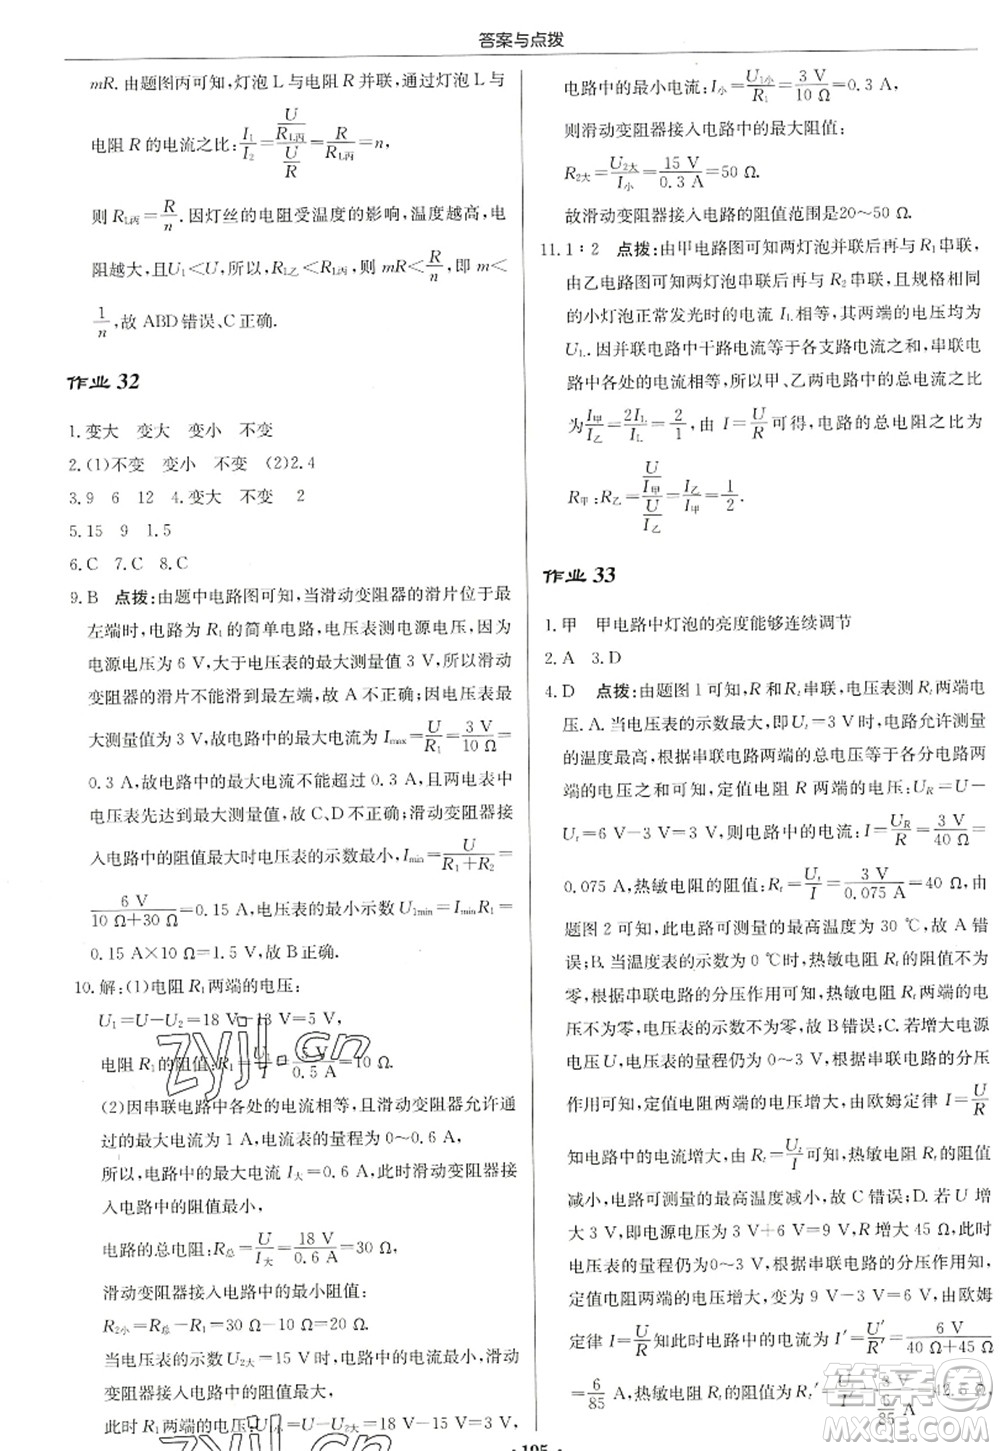 答案与点拨
mR. 由题图丙可知,灯泡 L 与电阻 R 并联,通过灯泡 L 与
电阻 R 的电流之比:I₁/I₂=(U/R_L丙)/(U/R)=R/R_L丙=n,
则 R_L丙=R/n. 因灯丝的电阻受温度的影响,温度越高,电
阻越大,且U₁<U,所以,R_L乙<R_L丙,则 mR<R/n,即 m<
1/n,故 ABD 错误、C 正确.
作业 32
1. 变大 变大 变小 不变
2. (1)不变 变小 不变 (2)2.4
3. 9 6 12 4. 变大 不变 2
5. 15 9 1.5
6. C 7. C 8. C
9. B 点拨:由题中电路图可知,当滑动变阻器的滑片位于最
左端时,电路为 R₁ 的简单电路,电压表测电源电压,因为
电源电压为 6 V,大于电压表的最大测量值 3 V,所以滑动
变阻器的滑片不能滑到最左端,故 A 不正确. 电压表最
大测量值为 3 V,故电路中的最大电流为 Imax=U/R₁=3 V/10 Ω=
0.3 A,故电路中的最大电流不能超过 0.3 A,且两电表中
电压表先达到最大测量值,故 C、D 不正确. 滑动变阻器接
入电路中的阻值最大时电压表的示数最小,Imin=U/(R₁+R₂)=
6 V/(10 Ω+30 Ω)=0.15 A,电压表的最小示数 U₁min=IminR₁=
0.15 A×10 Ω=1.5 V,故 B 正确.
10. 解:(1)电阻 R₁ 两端的电压:
U₁=U-U₂=18 V-13 V=5 V,
电阻 R₁ 的阻值:R₁=U₁/I=5 V/0.5 A=10 Ω.
(2)因串联电路中各处的电流相等,且滑动变阻器允许通
过的最大电流为 1 A,电流表的量程为 0~0.6 A,
所以,电路中的最大电流 I大=0.6 A,此时滑动变阻器接
入电路中的阻值最小,
电路的总电阻:R总=U/I大=18 V/0.6 A=30 Ω,
滑动变阻器接入电路中的最小阻值:
R₂小=R总-R₁=30 Ω-10 Ω=20 Ω.
当电压表的示数 U₂大=15 V 时,电路中的电流最小,
此时 R₁ 两端的电压:U₁小=U-U₂大=18 V-15 V=3 V,
电路中的最小电流:I小=U₁小/R₁=3 V/10 Ω=0.3 A,
则滑动变阻器接入电路中的最大阻值:
R₂大=U₂大/I小=15 V/0.3 A=50 Ω.
故滑动变阻器接入电路的阻值范围是20~50 Ω.
11. 1∶2 点拨:由甲电路图可知两灯泡并联后再与 R₁ 串联,
由乙电路图可知两灯泡串联后再与 R₂ 串联,且相同
的小灯泡正常发光时的电流 I_L 相等,其两端的电压均为
U_L. 因并联电路中干路电流等于各支路电流之和,串联
电路中各处的电流相等,所以甲、乙两电路中的总电流之比
为 I甲/I乙=2I_L/I_L=2/1,由 I=U/R 可得,电路的总电阻之比
R甲:R乙=(U/I甲)/(U/I乙)=I乙/I甲=1/2.
作业 33
1. 甲 甲电路中灯泡的亮度能够连续调节
2. A 3. D
4. D 点拨:由题图 1 可知,R 和 Rt 串联,电压表测 Rt 两端电
压. A. 当电压表的示数最大,即 Ut=3 V 时,电路允许测量
的温度最高,根据串联电路两端的总电压等于各分电路两
端的电压之和可知,定值电阻 R 两端的电压:UR=U-
Ut=6 V-3 V=3 V,则电路中的电流:I=UR/R=3 V/40 Ω=
0.075 A,热敏电阻的阻值:Rt=Ut/I=3 V/0.075 A=40 Ω,由
题图 2 可知,此电路可测量的最高温度为 30 ℃,故 A 错
误;B. 当温度表的示数为 0 ℃时,热敏电阻 Rt 的阻值不为
零,根据串联电路的分压作用可知,热敏电阻 Rt 两端的电
压不为零,电压表的示数不为零,故 B 错误;C. 若增大电源
电压,电压表的量程仍为 0~3 V,根据串联电路的分压
作用可知,定值电阻两端的电压增大,由欧姆定律 I=U/R
知电路中的电流增大,由 Rt=Ut/I 可知,热敏电阻的阻值
减小,电路可测量的最高温度减小,故 C 错误;D. 若 U 增
大 3 V,即电源电压为 3 V+6 V=9 V,R 增大 45 Ω,此时
电压表的量程仍为0~3 V,根据串联电路的分压作用可知,
定值电阻两端的电压增大,变为 9V-3 V=6 V,由欧姆
定律 I=U/R 知此时电路中的电流为 I′=U′/R′=6 V/(40 Ω+45 Ω)
=6/85 A,根据 I=U/R 可知 Rt′=U/I′=3 V/(6/85 A)=42.5 Ω,
· 195 ·
zyjl.cn
答案圈
MXQE.COM